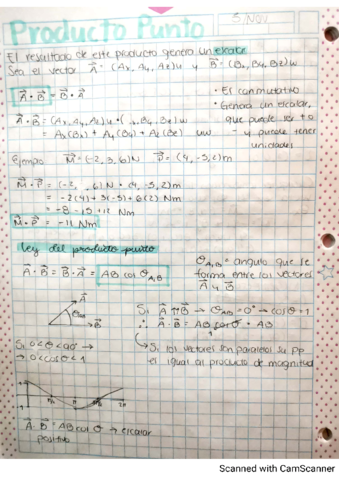 Producto Punto
5/Nov
El resultado de este producto genera un escalar
Sea el vector A = (Ax, Ay, Az)u y B = (Bx, By, Bz)w
A • B = B • A
• Es conmutativo
• Genera un escalar,
que puede ser + o
- y puede tener
unidades
A • B = (Ax, Ay, Az)u • ( , By, Bz)w
= Ax(Bx) + Ay(By) + Az(Bz) uw
Ejemplo M = (-2, 3, 6)N P = (4, -5, 2)m
M • P = (-2, , 6)N • (4, -5, 2)m
= -2(4) + 3(-5) + 6(2) Nm
= -8 - 15 + 12 Nm
M • P = -11 Nm
Ley del producto punto
A • B = B • A = AB cos θA,B
θA,B = angulo que se
forma entre los vectores
A y B
A
θAB
B
Si A ∥ B → θAB = 0° → cos θ = 1
∴ A • B = AB cos θ = AB
Si 0 < θ < 90° →
→ 0 < cos θ < 1
→ Si los vectores son paralelos su PP
es igual al producto de magnitud
π 2π
A • B = AB cos θ → escalar
positivo
Scanned with CamScanner